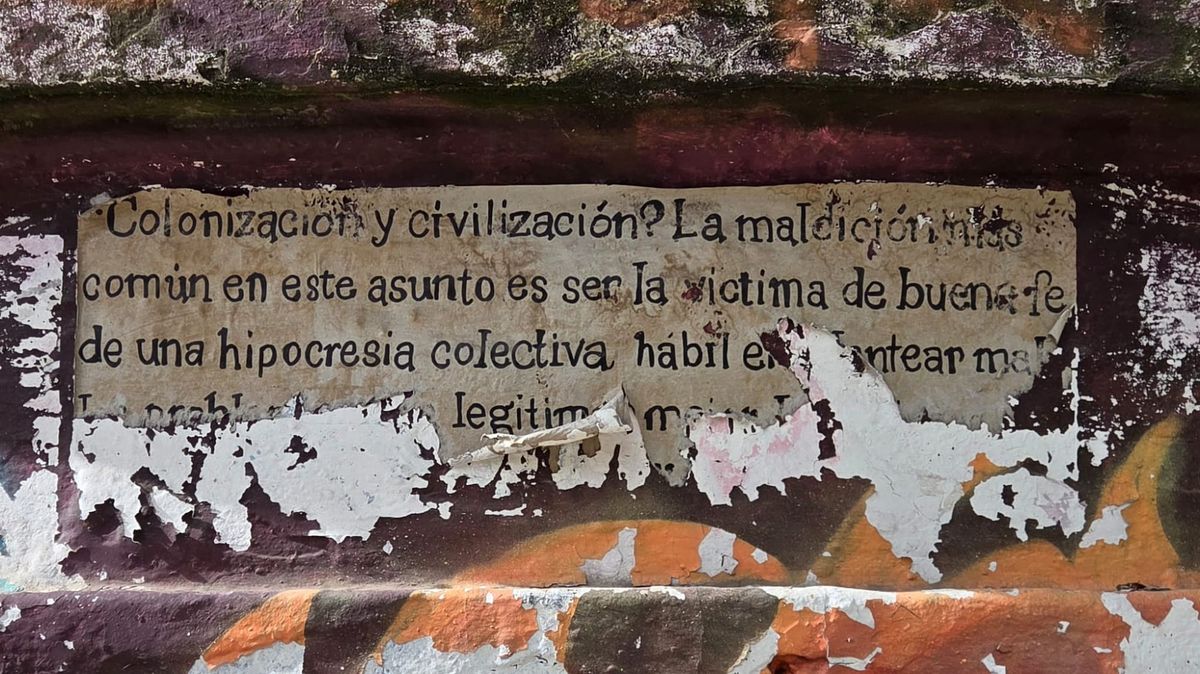 Colonización y civilización? La maldición más
común en este asunto es ser la victima de buena fe
de una hipocresia colectiva, hábil en mal
legitimar